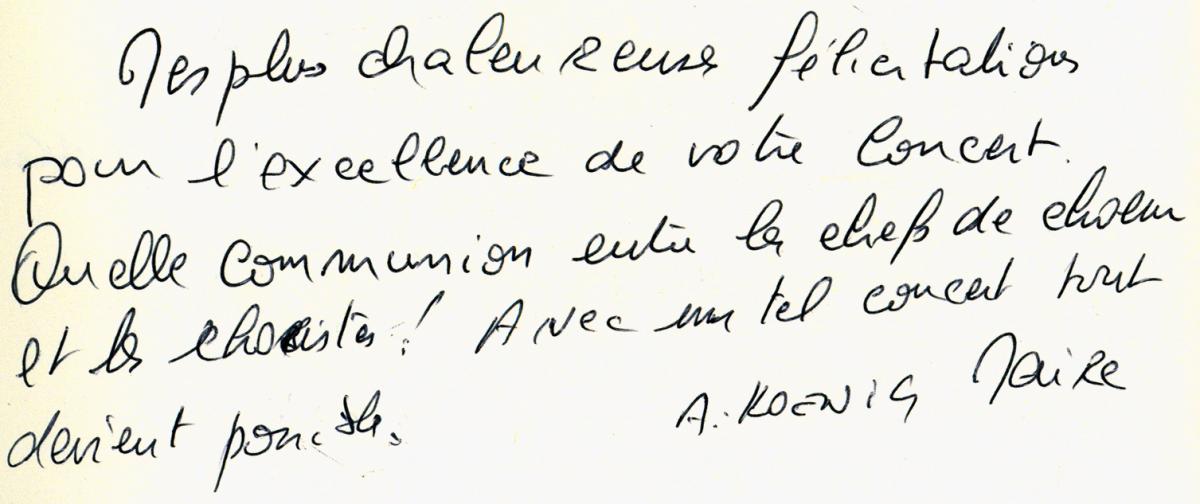 Mes plus chaleureuses félicitations
pour l'excellence de votre Concert.
Quelle communion entre le chef de choeur
et les choristes ! Avec un tel concert tout
devient possible.
A. KOENIG Maire